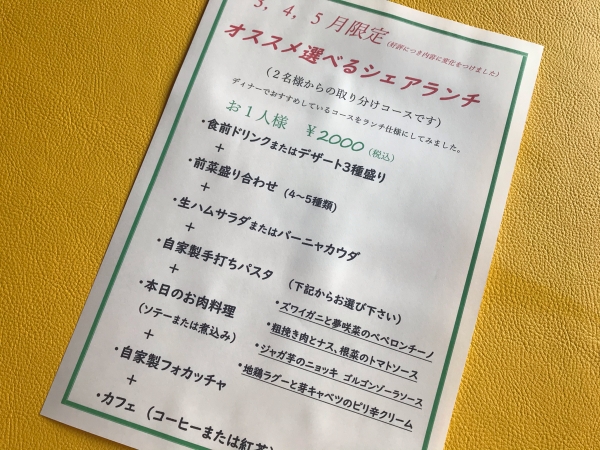 3, 4, 5月限定(好評につき内容に変化をつけました)
オススメ選べるシェアランチ
(2名様からの取り分けコースです)
ディナーでおすすめしているコースをランチ仕様にしてみました。
お1人様 ¥2000(税込)
・食前ドリンクまたはデザート3種盛り
+
・前菜盛り合わせ (4〜5種類)
+
・生ハムサラダまたはバーニャカウダ
+
・自家製手打ちパスタ (下記からお選び下さい)
・ズワイガニと夢咲菜のペペロンチーノ
・粗挽き肉とナス、根菜のトマトソース
・ジャガ芋のニョッキ ゴルゴンゾーラソース
・地鶏ラグーと芽キャベツのピリ辛クリーム
+
・本日のお肉料理
(ソテーまたは煮込み)
+
・自家製フォカッチャ
+
・カフェ (コーヒーまたは紅茶)